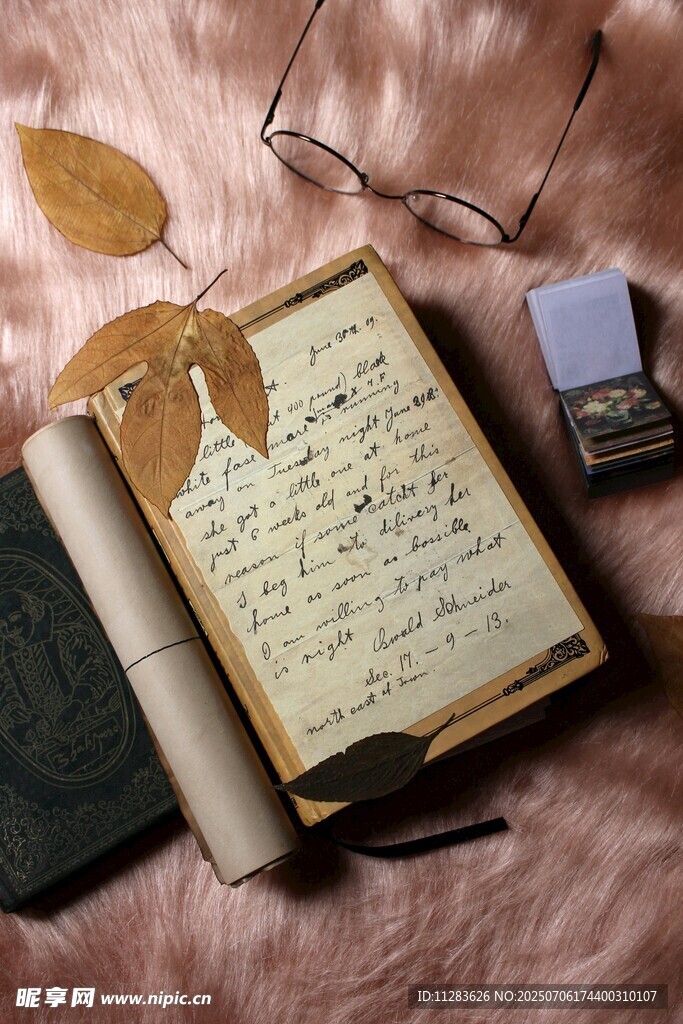 June 30th. 09.
little but 900 pound) black
white fase mare running
away on Tuesday night June 29th.
she got a little one at home
just 6 weeks old and for this
reason if some catcht her
I beg him to dilivery her
home as soon as bossible
I am willing to pay what
is right Oswald Schneider
Sec. 17. - 9 - 13.
north east of
昵享网 www.nipic.cn
ID:11283626 NO:20250706174400310107